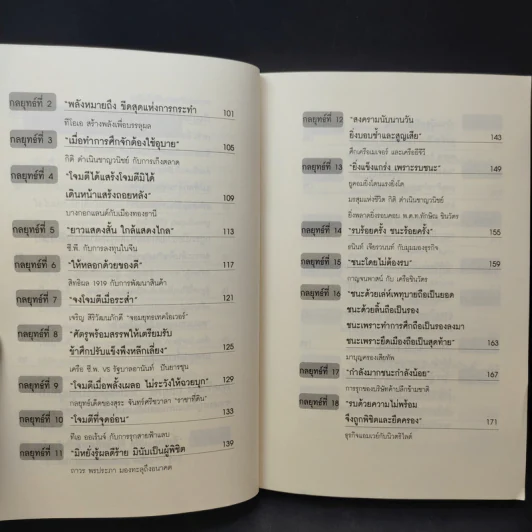 กลยุทธ์ที่ 2 "พลังหมายถึง ขีดสุดแห่งการกระทำ 101
ทีโอเอ สร้างพลังเพื่อบรรลุผล
กลยุทธ์ที่ 3 "เมื่อทำการศึกจักต้องใช้อุบาย" 105
กิติ ดำเนินชาญวนิชย์ กับการเก็งตลาด
กลยุทธ์ที่ 4 "โจมตีได้แสร้งโจมตีมิได้
เดินหน้าแสร้งถอยหลัง" 109
บางกอกแลนด์กับเมืองทองธานี
กลยุทธ์ที่ 5 "ยาวแสดงสั้น ใกล้แสดงไกล" 113
ซี.พี. กับการลงทุนในจีน
กลยุทธ์ที่ 6 "ให้หลอกด้วยของดี" 117
สิทธิผล 1919 กับการพัฒนาสินค้า
กลยุทธ์ที่ 7 "จงโจมตีเมื่อระส่ำ" 121
เจริญ สิริวัฒนภักดี "จอมยุทธเทคโอเวอร์"
กลยุทธ์ที่ 8 "ศัตรูพร้อมสรรพให้เตรียมรับ
ข้าศึกปรับแข็งพึงหลีกเลี่ยง" 125
เครือ ซี.พี. VS รัฐบาลอานันท์ ปันยารชุน
กลยุทธ์ที่ 9 "โจมตีเมื่อพลั้งเผลอ ไม่ระวังให้ฉวยบุก" 129
กลยุทธ์เด็ดของสุระ จันทร์ศรีชวาลา "ราชาที่ดิน"
กลยุทธ์ที่ 10 "โจมตีที่จุดอ่อน" 133
ทีเอ ออเร้นจ์ กับการรุกสายฟ้าแลบ
กลยุทธ์ที่ 11 "มิหยั่งรู้ผลดีร้าย มินับเป็นผู้พิชิต 139
ถาวร พรประภา มองทะลุถึงอนาคต
กลยุทธ์ที่ 12 "สงครามนับนานวัน
ยิ่งบอบช้ำและสูญเสีย" 143
ศึกเครือเมเจอร์ และเครืออีจีวี
กลยุทธ์ที่ 13 "ยิ่งแข็งแกร่ง เพราะรบชนะ" 149
ยูคอมยิ่งโตแรงยิ่งโต
มรสุมแห่งชีวิต กิติ ดำเนินชาญวนิชย์
ยิ่งพลาดยิ่งรอบคอบ พ.ต.ท.ทักษิณ ชินวัตร
กลยุทธ์ที่ 14 "รบร้อยครั้ง ชนะร้อยครั้ง" 155
ธนินท์ เจียรวนนท์ กับมุมมองธุรกิจ
กลยุทธ์ที่ 15 "ชนะโดยไม่ต้องรบ" 159
กาญจนพาสน์ กับ เครือชินวัตร
กลยุทธ์ที่ 16 "ชนะด้วยเล่ห์เพทุบายถือเป็นยอด
ชนะด้วยลิ้นถือเป็นรอง
ชนะเพราะทำการศึกถือเป็นรองลงมา
ชนะเพราะยึดเมืองถือเป็นสุดท้าย" 163
มาบุญครองเสียทัพ
กลยุทธ์ที่ 17 "กำลังมากชนะกำลังน้อย" 167
การรุกของบริษัทค้าปลีกข้ามชาติ
กลยุทธ์ที่ 18 "รบด้วยความไม่พร้อม
จึงถูกพิชิตและยึดครอง" 171
ธุรกิจแอมเวย์กับนิวสกิไลด์